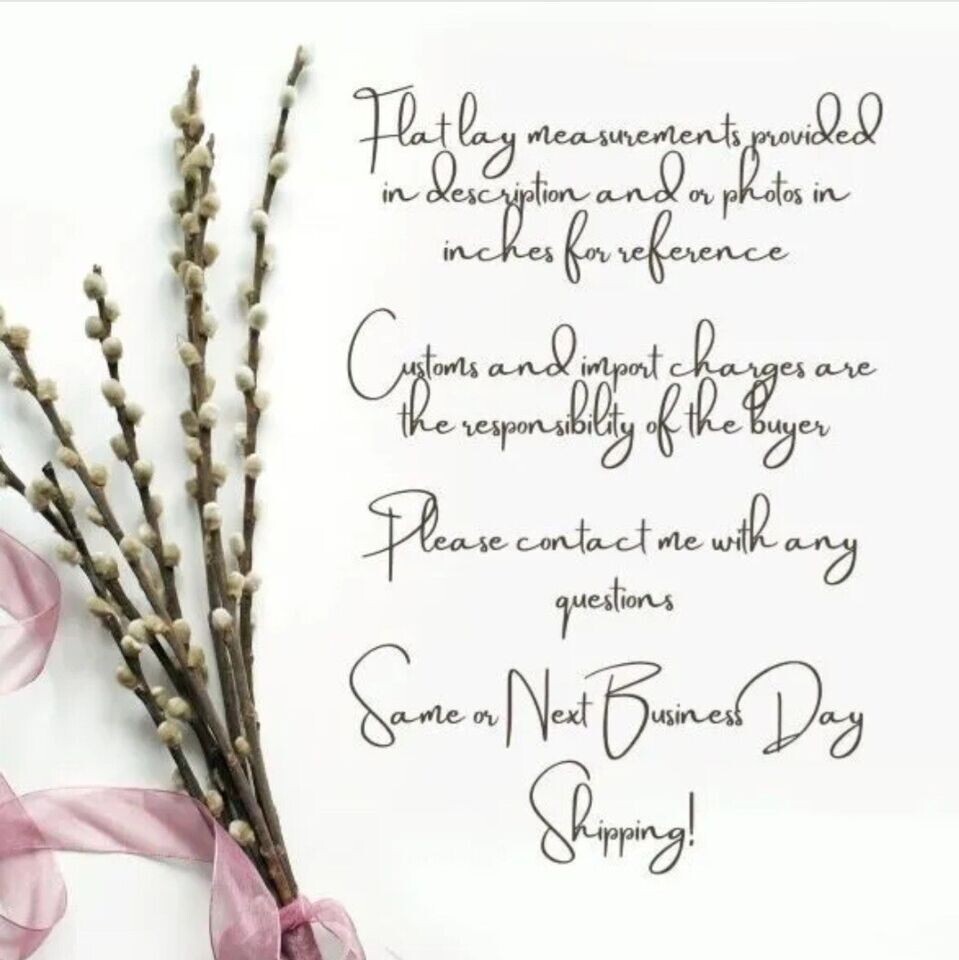 Flat lay measurements provided
in description and or photos in
inches for reference
Customs and import charges are
the responsibility of the buyer
Please contact me with any
questions
Same or Next Business Day
Shipping!